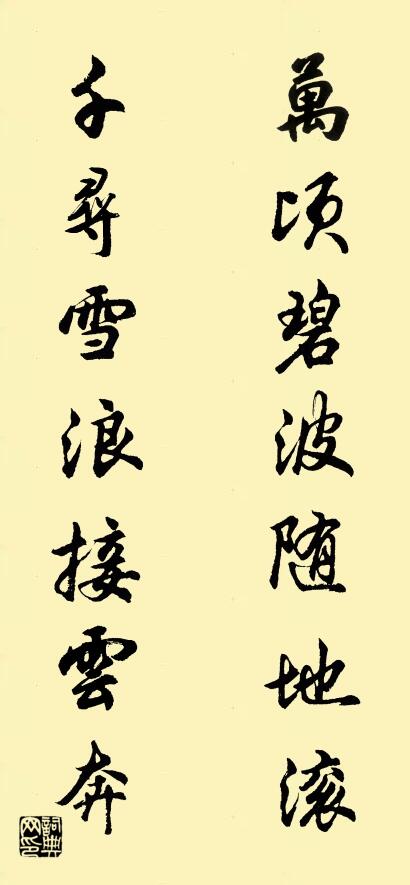 萬頃碧波随地滚
千尋雪浪接雲奔
詞典网印